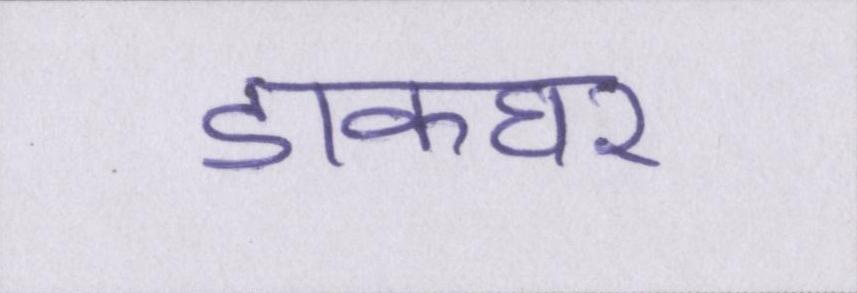 डाकघर